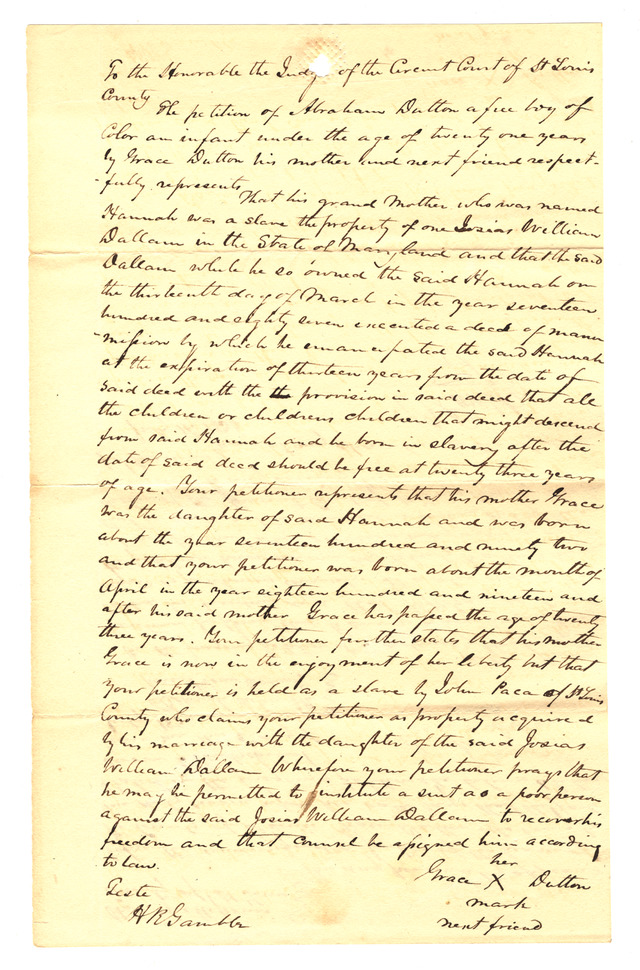 To the Honorable the Judge of the Circuit Court of St Louis
County
The petition of Abraham Dutton a free boy of
Color an infant under the age of twenty one years
by Grace Dutton his mother and next friend respect-
-fully represents
That his grand Mother who was named
Hannah was a slave the property of one Josias William
Dallam in the State of Maryland and that the said
Dallam while he so owned the said Hannah on
the thirteenth day of March in the year seventeen
hundred and eighty seven executed a deed of manu
-mission by which he emancipated the said Hannah
at the expiration of thirteen years from the date of
said deed with the provision in said deed that all
the children or childrens children that might descend
from said Hannah and be born in slavery after the
date of said deed should be free at twenty three years
of age. Your petitioner represents that his mother Grace
was the daughter of said Hannah and was born
about the year seventeen hundred and ninety two
and that your petitioner was born about the month of
April in the year eighteen hundred and nineteen and
after his said mother Grace has passed the age of twenty
three years. Your petitioner further states that his mother
Grace is now in the enjoyment of her liberty but that
your petitioner is held as a slave by John Paca of St Louis
County who claims your petitioner as property acquired
by his marriage with the daughter of the said Josias
William Dallam Wherefore your petitioner prays that
he may be permitted to institute a suit as a poor person
against the said Josias William Dallam to recover his
freedom and that counsel be assigned him according
to law.
her
Grace X Dutton
mark
next friend
Teste
H R Gamble